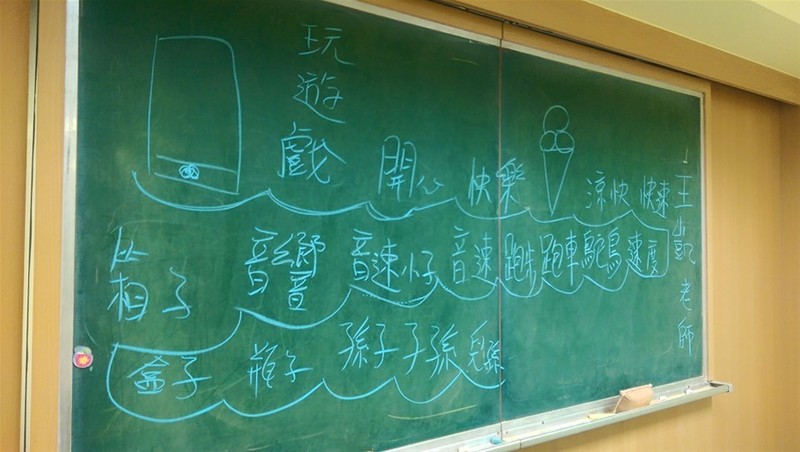 玩遊戲
開心 快樂 涼快 快速
箱子 音響 音速小子 音速 跑步 跑車 鴕鳥 速度
盒子 瓶子 孫子 子孫 兒孫
王凱老師